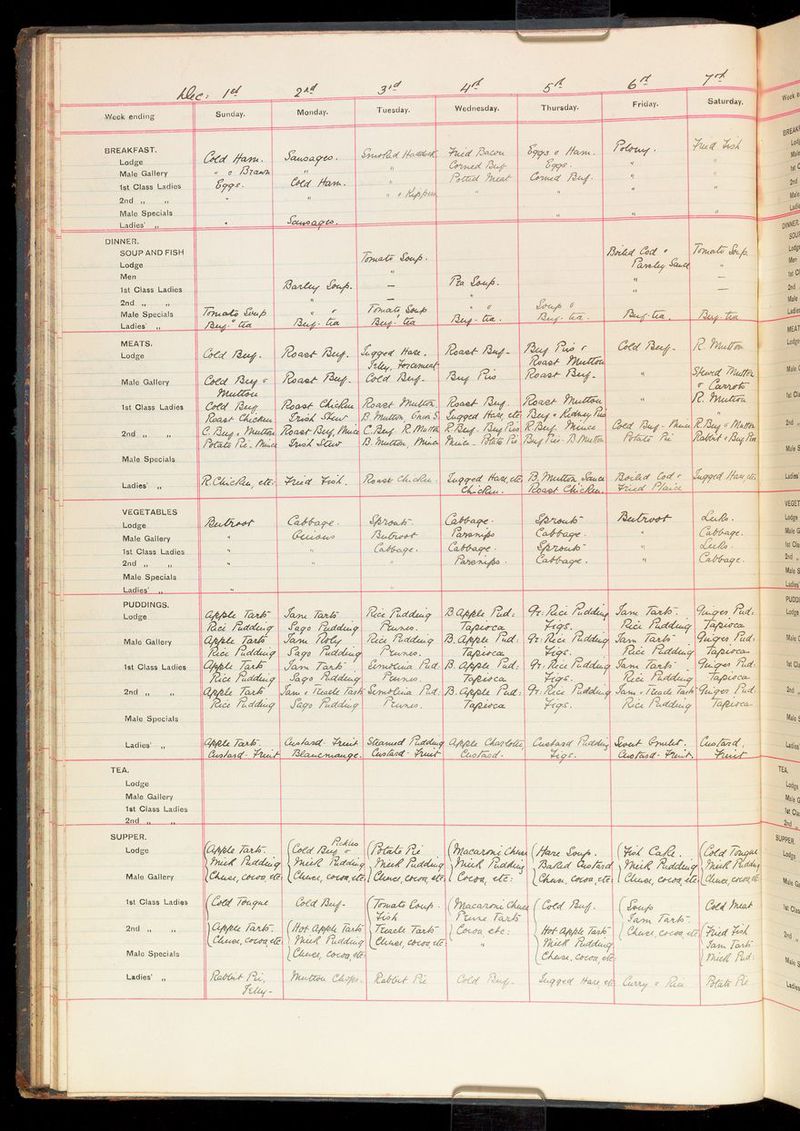 Dec: 1st 2nd 3rd 4th 5th 6th 7th
Week ending Sunday. Monday. Tuesday. Wednesday. Thursday. Friday. Saturday.
BREAKFAST.
Lodge Cold Ham. Sausages. Smoked Haddock Fried Bacon Eggs & Ham. Polony. Fried Fish
Male Gallery " & Brawn " " Corned Beef Eggs. " "
1st Class Ladies Eggs. Cold Ham. " Potted Meat Corned Beef. " "
2nd " " " " " & Kippers " " " "
Male Specials " " "
Ladies' " " Sausages.
DINNER.
SOUP AND FISH
Lodge Tomato Soup. Boiled Cod & Parsley Sauce Tomato Soup.
Men " "
1st Class Ladies Barley Soup. — Pea Soup. " —
2nd " " " — " " —
Male Specials Tomato Soup " " Tomato Soup " " Soup
Ladies' " Beef-tea Beef-tea Beef-tea Beef-tea. Beef-tea. Beef-tea. Beef-tea
MEATS.
Lodge Cold Beef. Roast Beef. Jugged Hare. Jelly, Forcemeat Roast Beef- Beef Pies & Roast Mutton Cold Beef- R. Mutton
Male Gallery Cold Beef & Mutton Roast Beef. Cold Beef- Beef Pies Roast Beef- " Stewed Mutton & Carrots
1st Class Ladies Cold Beef Roast Chicken Roast Chicken Irish Stew Roast Mutton B. Mutton Roast Beef. Jugged Hare, etc Roast Mutton Beef & Kidney Pies " R. Mutton
2nd " " C. Beef & Mutton Potato Pie. Mince Roast Beef, Mince Irish Stew C. Beef R. Mutton B. Mutton, Mince R. Beef. Beef Pies Mince. Potato Pie R. Beef. Mince Beef Pies. B. Mutton Cold Beef. Mince Potato Pie R. Beef & Mutton Rabbit & Beef Pies
Male Specials
Ladies' " R. Chicken, etc: Fried Fish. Roast Chicken. Jugged Hare, etc Chicken. B. Mutton Sauce Roast Chicken. Boiled Cod & Fried Plaice Jugged Hare, etc.
VEGETABLES
Lodge Beetroot Cabbage. Sprouts Cabbage. Sprouts Beetroot Leeks.
Male Gallery " Onions Beetroot Parsnips Cabbage. " Cabbage.
1st Class Ladies " " Cabbage. Cabbage. Sprouts " Leeks.
2nd " " " " " Parsnips. Cabbage. " Cabbage.
Male Specials
Ladies' " "
PUDDINGS.
Lodge Apple Tarts Jam Tarts Rice Pudding B. Apple Pud: Gr: Rice Pudding Jam Tarts. Ginger Pud:
Rice Pudding Sago Pudding Prunes. Tapioca Figs. Rice Pudding Tapioca
Male Gallery Apple Tarts Jam Roly Rice Pudding B. Apple Pud: Gr: Rice Pudding Jam Tarts Ginger Pud:
Rice Pudding Sago Pudding Prunes. Tapioca Figs. Rice Pudding Tapioca
1st Class Ladies Apple Tarts Jam Tarts Semolina Pud. B. Apple Pud: Gr: Rice Pudding Jam Tarts Ginger Pud:
Rice Pudding Sago Pudding Prunes. Tapioca Figs. Rice Pudding Tapioca
2nd " " Apple Tarts Jam & Treacle Tarts Semolina Pud. B. Apple Pud: Gr: Rice Pudding Jam & Treacle Tarts Ginger Pud
Rice Pudding Sago Pudding Prunes. Tapioca Figs. Rice Pudding Tapioca
Male Specials
Ladies' " Apple Tarts. Custard. Fruit Steamed Pudding Apple Charlotte, Custard Pudding Sweet Omelet. Custard,
Custard. Fruit Blancmange. Custard. Fruit Custard. Figs. Custard. Fruit. Fruit
TEA.
Lodge
Male Gallery
1st Class Ladies
2nd " "
SUPPER.
Lodge Apple Tarts. Cold Beef & Pickles Potato Pie Macaroni Cheese Hare Soup. Fish Cake. Cold Tongue
Milk Pudding Milk Pudding Milk Pudding Milk Pudding Baked Custard Milk Pudding Milk Pudding
Male Gallery Cheese, cocoa, etc Cheese, cocoa, etc Cheese, cocoa, etc Cocoa, etc: Cheese. Cocoa, etc: Cheese, cocoa, etc Cheese, cocoa, etc
1st Class Ladies Cold Tongue Cold Beef- Tomato Soup. Fish Macaroni Cheese Prune Tarts Cold Beef. Soup Jam Tarts. Cold Meat
2nd " " Apple Tarts. Cheese, cocoa, etc Hot Apple Tarts Milk Pudding Cheese, Cocoa, etc Treacle Tarts Cheese, cocoa, etc Cocoa, etc. " Hot Apple Tarts Milk Pudding Cheese, Cocoa, etc Cheese, cocoa, etc Fried Fish Jam Tarts Milk Pud:
Male Specials
Ladies' " Rabbit Pie, Jelly- Mutton Chops. Rabbit Pie Cold Beef- Jugged Hare, etc Curry & Rice Potato Pie